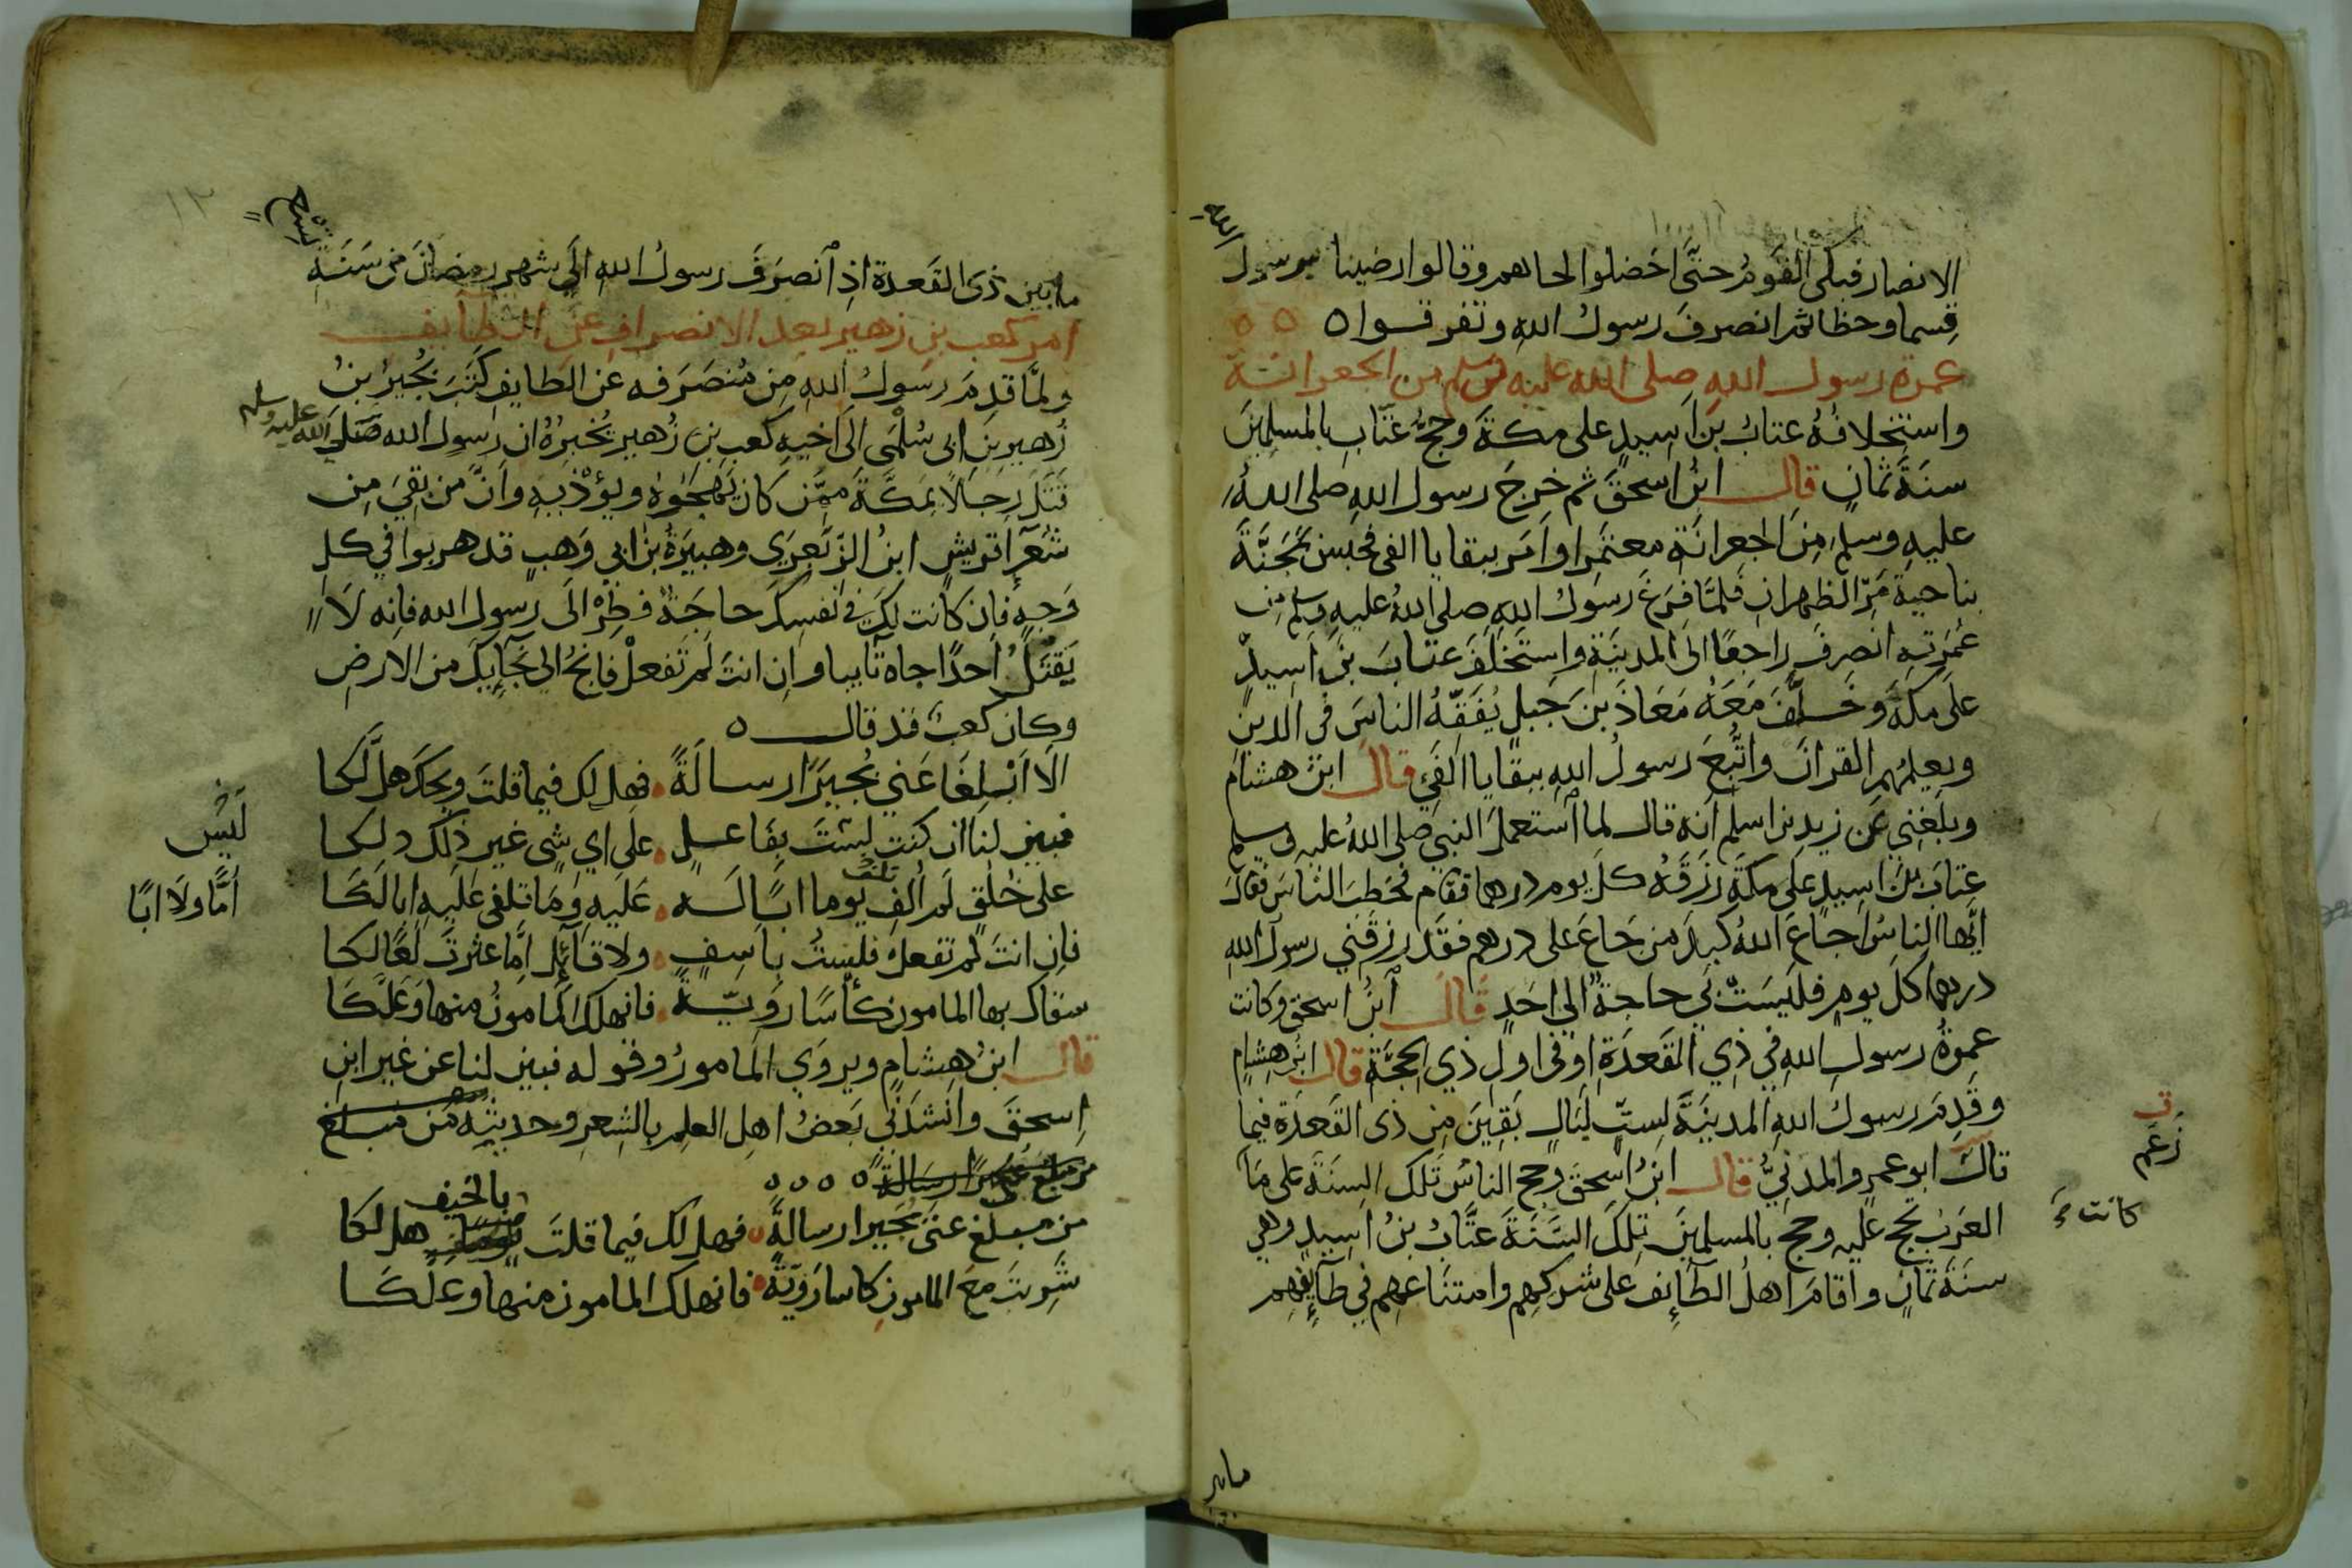 الانصار فبكى القوم حتَّى اخضلوا لحاهم وقالوا رضينا برسول الله
قِسما وحظا ثم انصرفَ رسولُ اللهِ وتفرقوا ه ه ه
عمرة رسول اللهِ صلى الله عليه وسلم من الجعرانة
واستخلافُهُ عتابُ بنَ اَسِيدٍ على مكةَ وحجُّ عتّابٍ بالمسلمينَ
سنَةَ ثمانٍ قال ابنُ اسحقَ ثم خرجَ رسول اللهِ صلى اللهُ
عليهِ وسلم مِنَ الجِعرانَةِ معتمِرا واَمَر ببقايا الفى فحُبسَ بمَجَنَّةَ
بناحيةِ مَرِّ الظهرانِ فلمَّا فرَغَ رسولُ اللهِ صلى اللهُ عليهِ وسلم مِن
عُمرَتِهِ انصرفَ راجعًا الى المدينَةِ واستخلَفَ عتابَ بنَ اَسِيدٍ
على مكةَ وخلَّفَ مَعَهُ مَعَاذَ بنَ جَبلٍ يُفَقِّهُ الناسَ فى الدينِ
ويعلمُهم القرانَ واتُّبعَ رسولُ اللهِ ببقايا الفَيْ قال ابنُ هشام
وبلَغني عَن زيدِ بنِ اسلم اَنه قال لما استعملَ النبي صلى اللهُ عليه وسلم
عتابَ بنَ اَسِيدٍ على مكةَ رزَقَهُ كلَّ يوم درهما فقام فخطبَ الناسَ فقال
ايُّها الناسُ اجاعَ اللهُ كبِدَ مَن جَاعَ على درهم فقَد رزقَني رسولُ الله
درهما كلَّ يومٍ فليسَتْ بي حاجةٌ الى احَدٍ قال ابنُ اسحق وكانت
عمرةُ رسولِ اللهِ في ذِي القَعدَةِ او فى اولِ ذي الحِجَّةِ قال ابنُ هشامٍ
وقَدِمَ رسولُ اللهِ المدينَةَ لستِّ ليَالٍ بَقِينَ مِن ذى القَعدَةِ فيما
زعَم
قالَ ابو عمرٍو المدنيُّ قال ابنُ اسحقَ وحج الناسُ تلكَ السنَةَ على مَا
كانت
العَربُ تحج عليه وحج بالمسلمينَ تِلكَ السَّنَةَ عتَّابُ بنُ اَسِيدٍ وهي
سنَةُ ثمَانٍ واَقامَ اهلُ الطائِفِ على شركِهِم وامتنَاعهِم في طآئِفِهِم
مابين
مابين ذى القَعدة اذِ انصرَفَ رسولُ اللهِ الى شهرِ رمضانَ من سَنَةِ تسْعٍ
امر كعب بن زهير بعد الانصراف عن الطآئف
ولمَّا قدِمَ رسولُ اللهِ مِن مُنصَرَفهِ عن الطايِفِ كتَبَ بُجَيرُ بنُ
زُهيرِ بنِ ابى سُلْمَى الى اخيهِ كعبِ بنِ زُهيرٍ يُخبِرُهُ ان رسولَ الله صلى الله عليه وسلم
قَتَلَ رجالًا بمَكَّةَ ممَّن كانَ يَهجُوهُ ويؤذيهِ واَنَّ مَن بقِيَ مِن
شُعَرآءِ قريشٍ ابنُ الزَّبَعرَى وهبَيرَةُ بنُ ابي وَهبٍ قد هربوا في كلِ
وَجهٍ فان كانت لكَ في نفسِكَ حاجَةٌ فطِرْ الى رسولِ الله فانه لَا
يَقتُلُ احدًا جاه تآيبا وان انتَ لَم تَفعلْ فانجُ الى نجَآيِكَ من الارضِ
وكان كعبٌ قد قال ه
الَا اَبْلِغَا عَني بُجيرًا رسالَةً فهل لك فيما قلتَ ويحكَ هل لَّكا
فبينْ لنا ان كنت لستَ بفَاعلٍ على ايِ شي غيرِ ذلك دلكا
لَيْسَ
على خُلقٍ لَم اُلفِ يوما ابًا لَه عَليهِ ومَا تلفى عَلَيهِ ابا لَكَا
تلف
اُمًّا ولَا ابًا
فان انتَ لم تفعلْ فلستُ باسِفٍ ولا قآئِلٍ اِمَّا عثرتَ لعًا لكا
سقاك بها المامونُ كأسًا روِيَّةً فانهلكَ المامونُ منها وَعَلَّكَا
قال ابنُ هشامٍ ويروَى المامورُ وقوله فبين لنا عن غيرِ ابنِ
اسحقَ وانشدَني بَعضُ اهلِ العلمِ بالشعرِ وحديثِهِ مَن مبلغ
ه ه ه ه
من مبلغ عنى بجيرا رسالةً فهل لك فيما قلتَ بالخيف هل لكا
شَرِبتَ معَ المامونِ كاسا رَوِيّةً فانهلك المامون منها وعلّكا